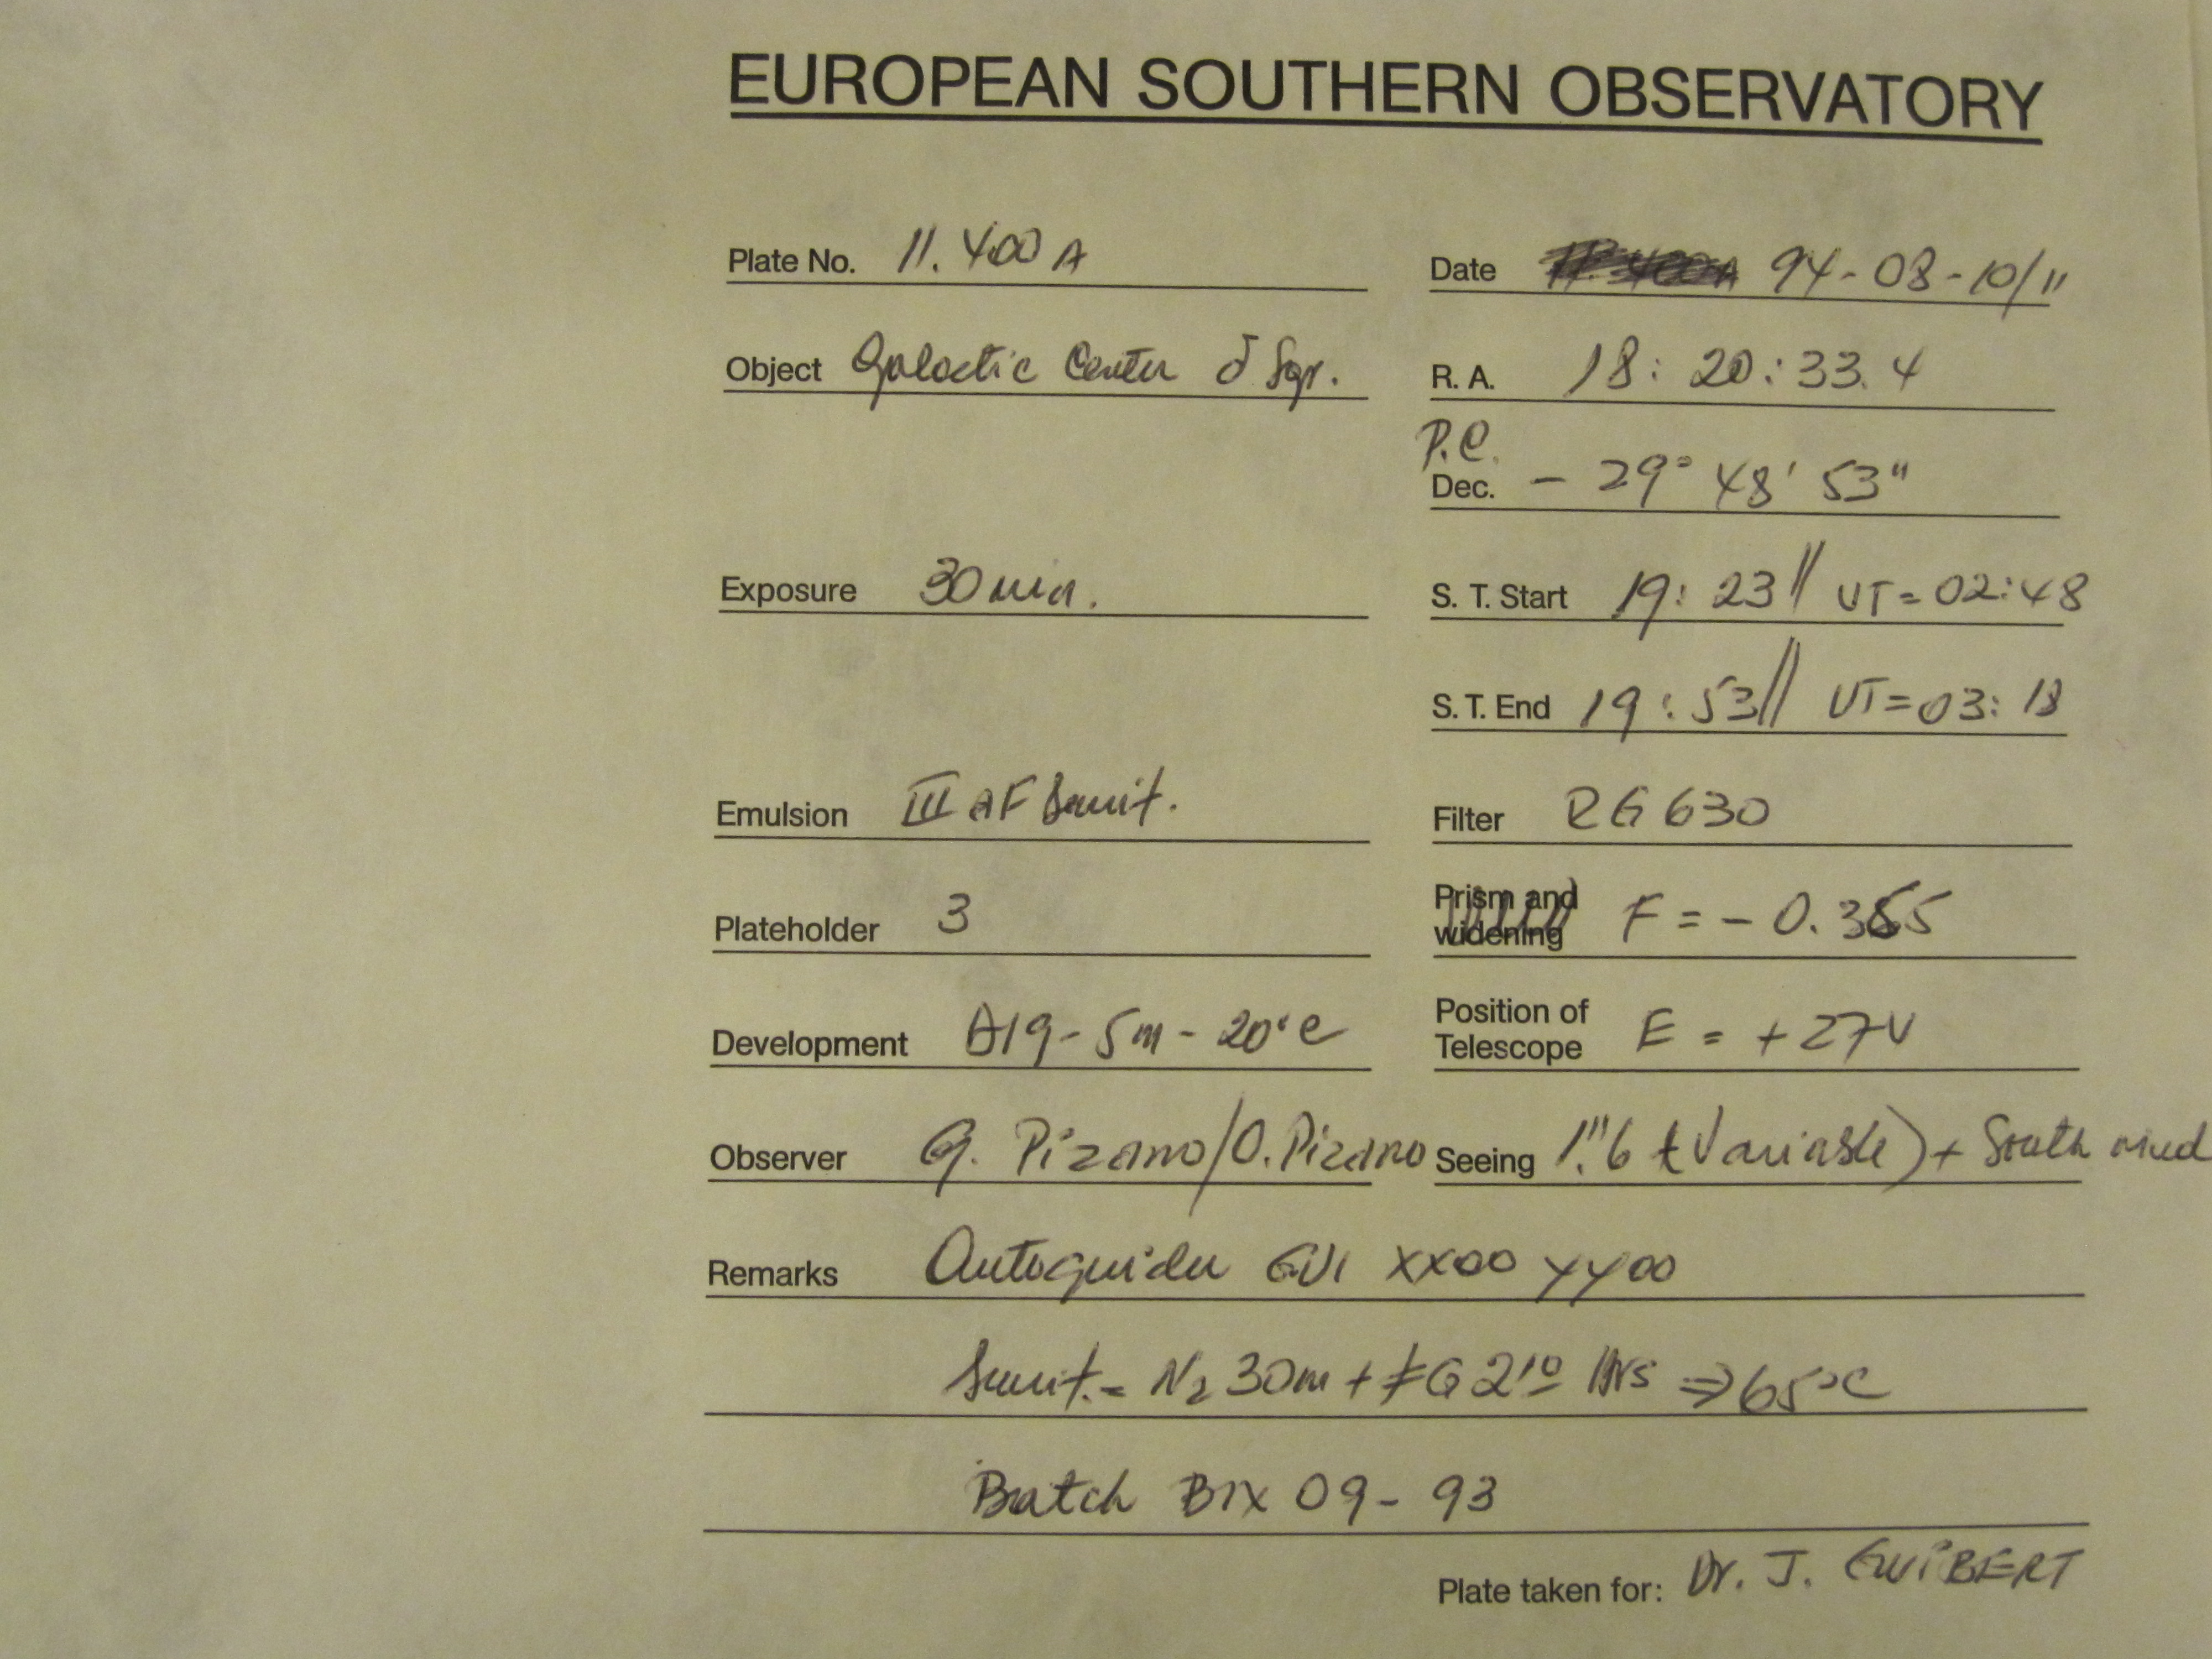 EUROPEAN SOUTHERN OBSERVATORY
Plate No. 11.400 A
Date 94-08-10/11
Object Galactic Center δ Sgr.
R. A. 18: 20: 33.4
P.C.
Dec. - 29° 48' 53"
Exposure 30 min.
S. T. Start 19: 23 // UT = 02:48
S. T. End 19: 53 // UT = 03: 18
Emulsion III aF Sensit.
Filter RG 630
Plateholder 3
Prism and widening F = - 0.365
Development D19 - 5m - 20°C
Position of Telescope E = + 27V
Observer G. Pizarro/O. Pizarro
Seeing 1."6 (Variable) + South wind
Remarks Autoguider GV1 XX00 YY00
Sensit. = N2 30m + FG 2 10 Hrs ⇒ 65°C
Batch 09-93
Plate taken for: Dr. J. GUIBERT